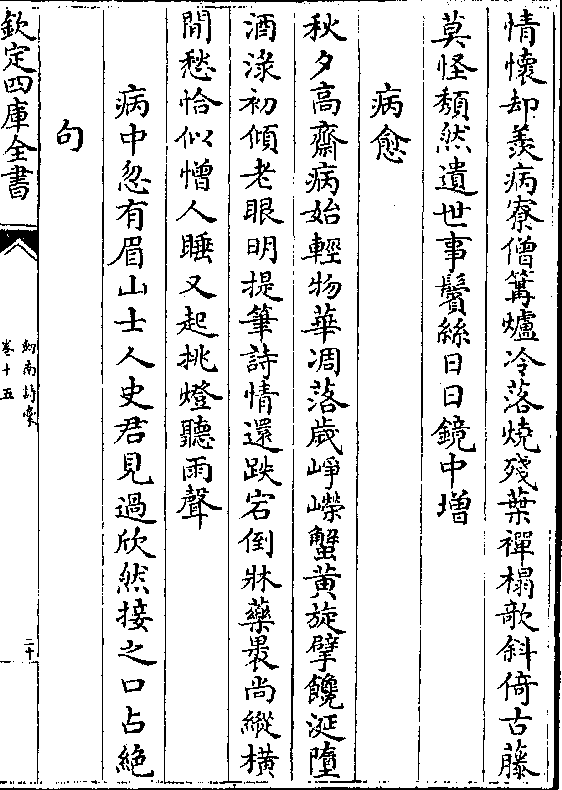 情懷却羨病寮僧篝爐冷落燒殘葉禪榻欹斜倚古藤
莫怪頽然遺世事鬢絲日日鏡中增
病愈
秋夕高齋病始輕物華凋落歲崢嶸蟹黃旋擘饞涎墮
酒淥初傾老眼明提筆詩情還跌宕倒牀藥裹尚縱橫
閒愁恰似憎人睡又起挑燈聽雨聲
病中忽有眉山士人史君見過欣然接之口占絶
句
欽定四庫全書
劍南詩稾
卷十五
二十